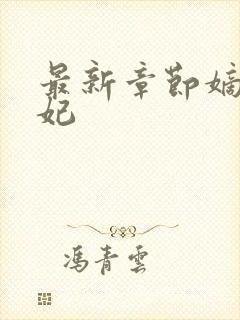 最新章節嫡
妃
馮青雲